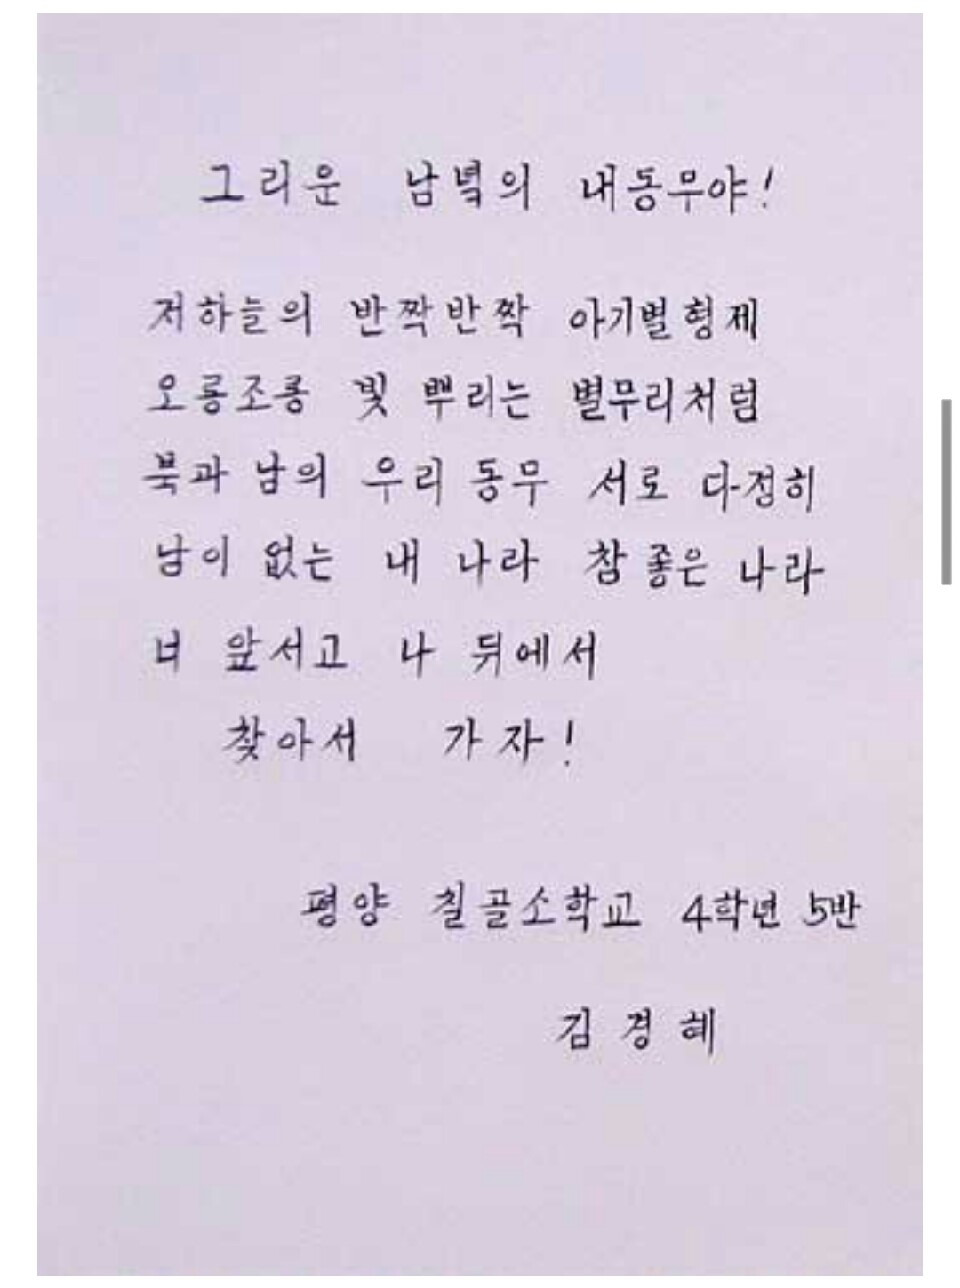 그리운 남녘의 내동무야!
저하늘의 반짝반짝 아기별형제
오롱조롱 빛 뿌리는 별무리처럼
북과 남의 우리 동무 서로 다정히
남이 없는 내 나라 참 좋은 나라
너 앞서고 나 뒤에서
찾아서 가자!
평양 칠골소학교 4학년 5반
김경혜